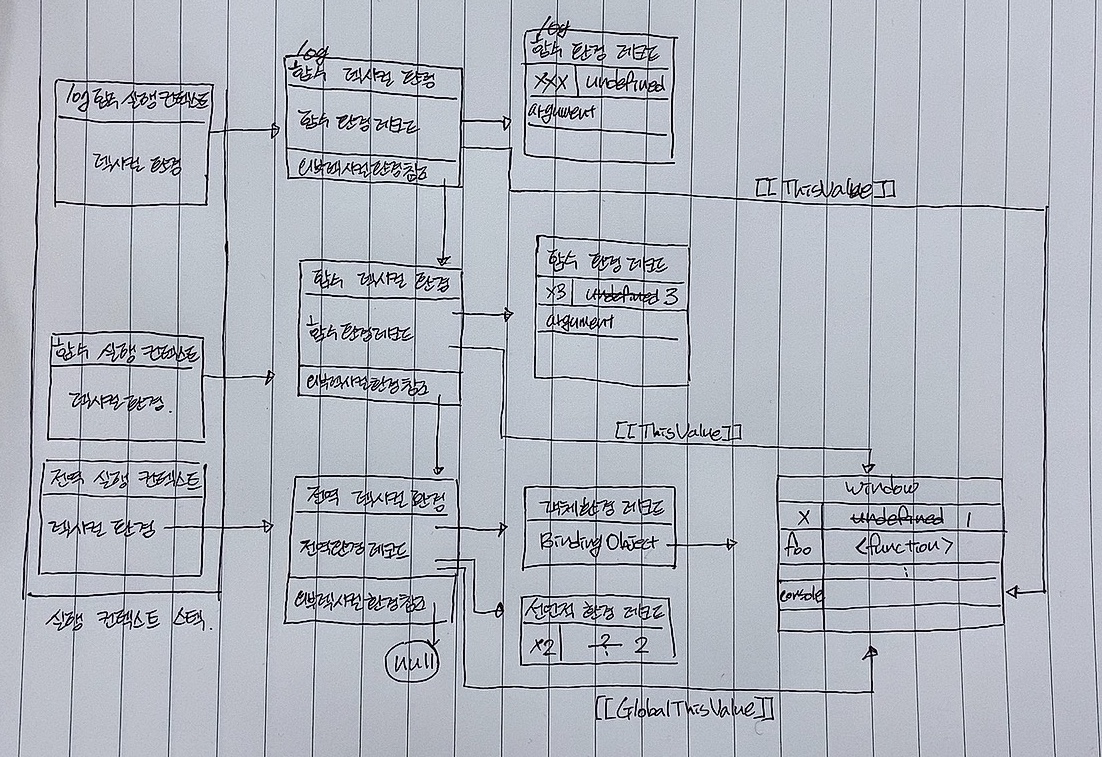 log 함수 실행 컨텍스트
렉시컬 환경
log
함수 렉시컬 환경
함수 환경 레코드
외부렉시컬환경참조
log
함수 환경 레코드
xxx undefined
argument
[[ThisValue]]
함수 실행 컨텍스트
렉시컬 환경.
함수 렉시컬 환경
함수 환경 레코드
외부렉시컬환경참조
함수 환경 레코드
x3 undefined 3
argument
[[ThisValue]]
전역 실행 컨텍스트
렉시컬 환경
실행 컨텍스트 스택.
전역 렉시컬 환경
전역환경 레코드
외부렉시컬환경참조
null
객체환경 레코드
Binding Object
선언적 환경 레코드
x2 ? 2
window
x undefined 1
foo <function>
⋮
console
[[GlobalThisValue]]